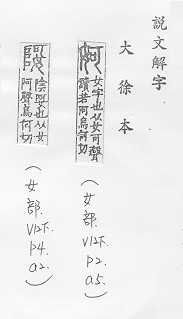 說文解字
大徐本
妸
女字也从女可聲
讀若阿烏何切
(女部. V12下. P.2. a.5.)
娿
陰娿也从女
阿聲烏何切
(女部. V12下. P.4. a.2.)